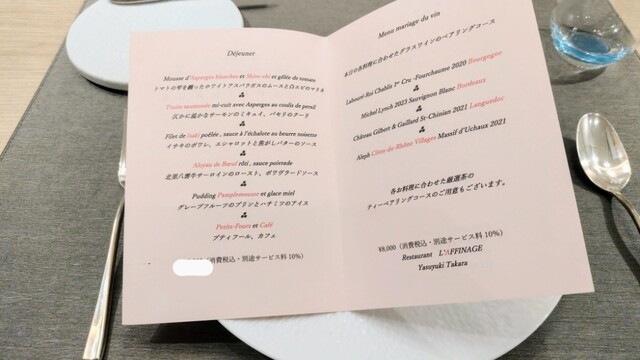 Déjeuner
Mousse d'Asperges blanches et Shiro-ebi et gelée de tomate
トマトの雫を纏ったホワイトアスパラガスのムースと白エビのマリネ
Truite saumonée mi-cuit avec Asperges au coulis de persil
仄かに温かなサーモンのミキュイ、パセリのクーリ
Filet de Isaki poêlée , sauce à l'échalote au beurre noisette
イサキのポワレ、エシャロットと焦がしバターのソース
Aloyau de Bœuf rôti , sauce poivrade
北里八雲牛サーロインのロースト、ポワヴラードソース
Pudding Pamplemousse et glace miel
グレープフルーツのプリンとハチミツのアイス
Petits-Fours et Café
プティフール、カフェ
(消費税込・別途サービス料 10%)
Menu mariage du vin
本日の各料理に合わせたグラスワインのペアリングコース
Labouré-Roi Chablis 1er Cru -Fourchaume 2020 Bourgogne
Michel Lynch 2023 Sauvignon Blanc Bordeaux
Château Gilbert & Gaillard St-Chinian 2021 Languedoc
Aleph Côtes-du-Rhône Villages Massif d'Uchaux 2021
各お料理に合わせた厳選茶の
ティーペアリングコースのご用意もございます。
¥8,000 (消費税込・別途サービス料 10%)
Restaurant L'AFFINAGE
Yasuyuki Takara